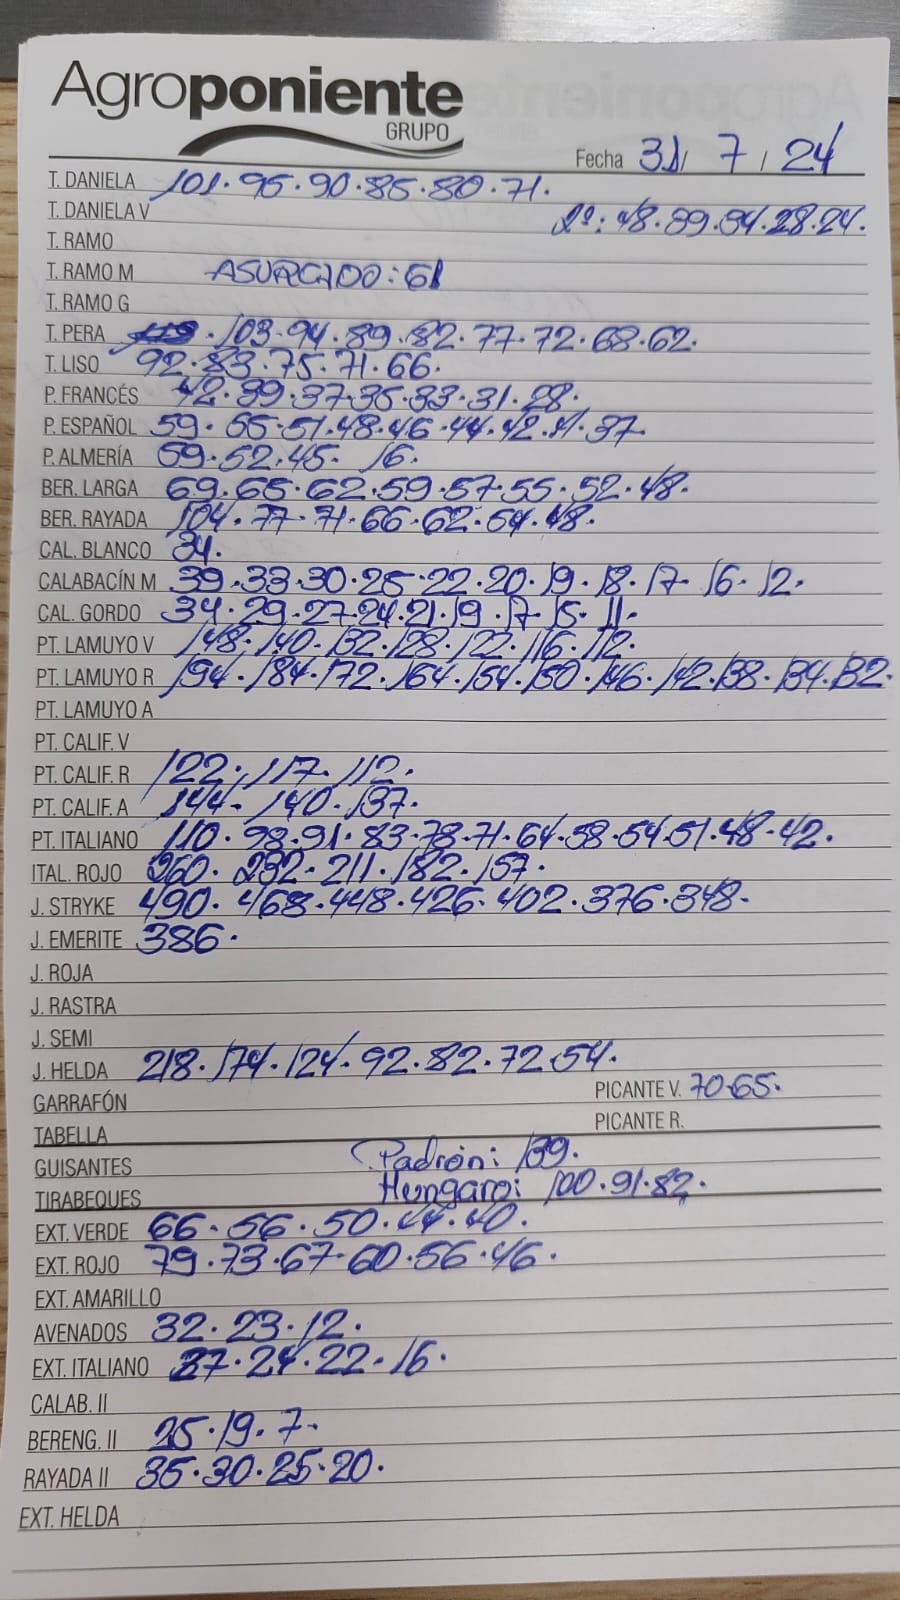 Agroponiente
GRUPO
Fecha 31 / 7 / 24
T. DANIELA 101. 95. 90. 85. 80. 71.
T. DANELA V 2ª: 48. 39. 34. 28. 24.
T. RAMO
T. RAMO M ASURCADO: 61
T. RAMO G
T. PERA . 103. 94. 89. 82. 77. 72. 68. 62.
T. LISO 92. 83. 75. 71. 66.
P. FRANCÉS 42. 39. 37. 35. 33. 31. 28.
P. ESPAÑOL 59. 55. 51. 48. 46. 44. 42. 41. 37.
P. ALMERÍA 59. 52. 45. 16.
BER. LARGA 69. 65. 62. 59. 57. 55. 52. 48.
BER. RAYADA 104. 77. 71. 66. 62. 54. 48.
CAL. BLANCO 34.
CALABACÍN M 39. 33. 30. 25. 22. 20. 19. 18. 17. 16. 12.
CAL. GORDO 34. 29. 27. 24. 21. 19. 17. 15. 11.
PT. LAMUYO V 148. 140. 132. 128. 122. 116. 112.
PT. LAMUYO R 194. 184. 172. 164. 154. 150. 146. 142. 138. 134. 132.
PT. LAMUYO A
PT. CALIF. V
PT. CALIF. R 122. 117. 112.
PT. CALIF. A 144. 140. 137.
PT. ITALIANO 110. 98. 91. 83. 78. 71. 64. 58. 54. 51. 48. 42.
ITAL. ROJO 260. 232. 211. 182. 157.
J. STRYKE 490. 468. 448. 426. 402. 376. 348.
J. EMERITE 386.
J. ROJA
J. RASTRA
J. SEMI
J. HELDA 218. 174. 124. 92. 82. 72. 54.
GARRAFÓN PICANTE V. 70. 65.
TABELLA PICANTE R.
GUISANTES Padrón: 139.
TIRABEQUES Hungaro: 100. 91. 82.
EXT. VERDE 66. 56. 50. 44. 40.
EXT. ROJO 79. 73. 67. 60. 56. 46.
EXT. AMARILLO
AVENADOS 32. 23. 12.
EXT. ITALIANO 27. 24. 22. 16.
CALAB. II
BERENG. II 25. 19. 7.
RAYADA II 35. 30. 25. 20.
EXT. HELDA